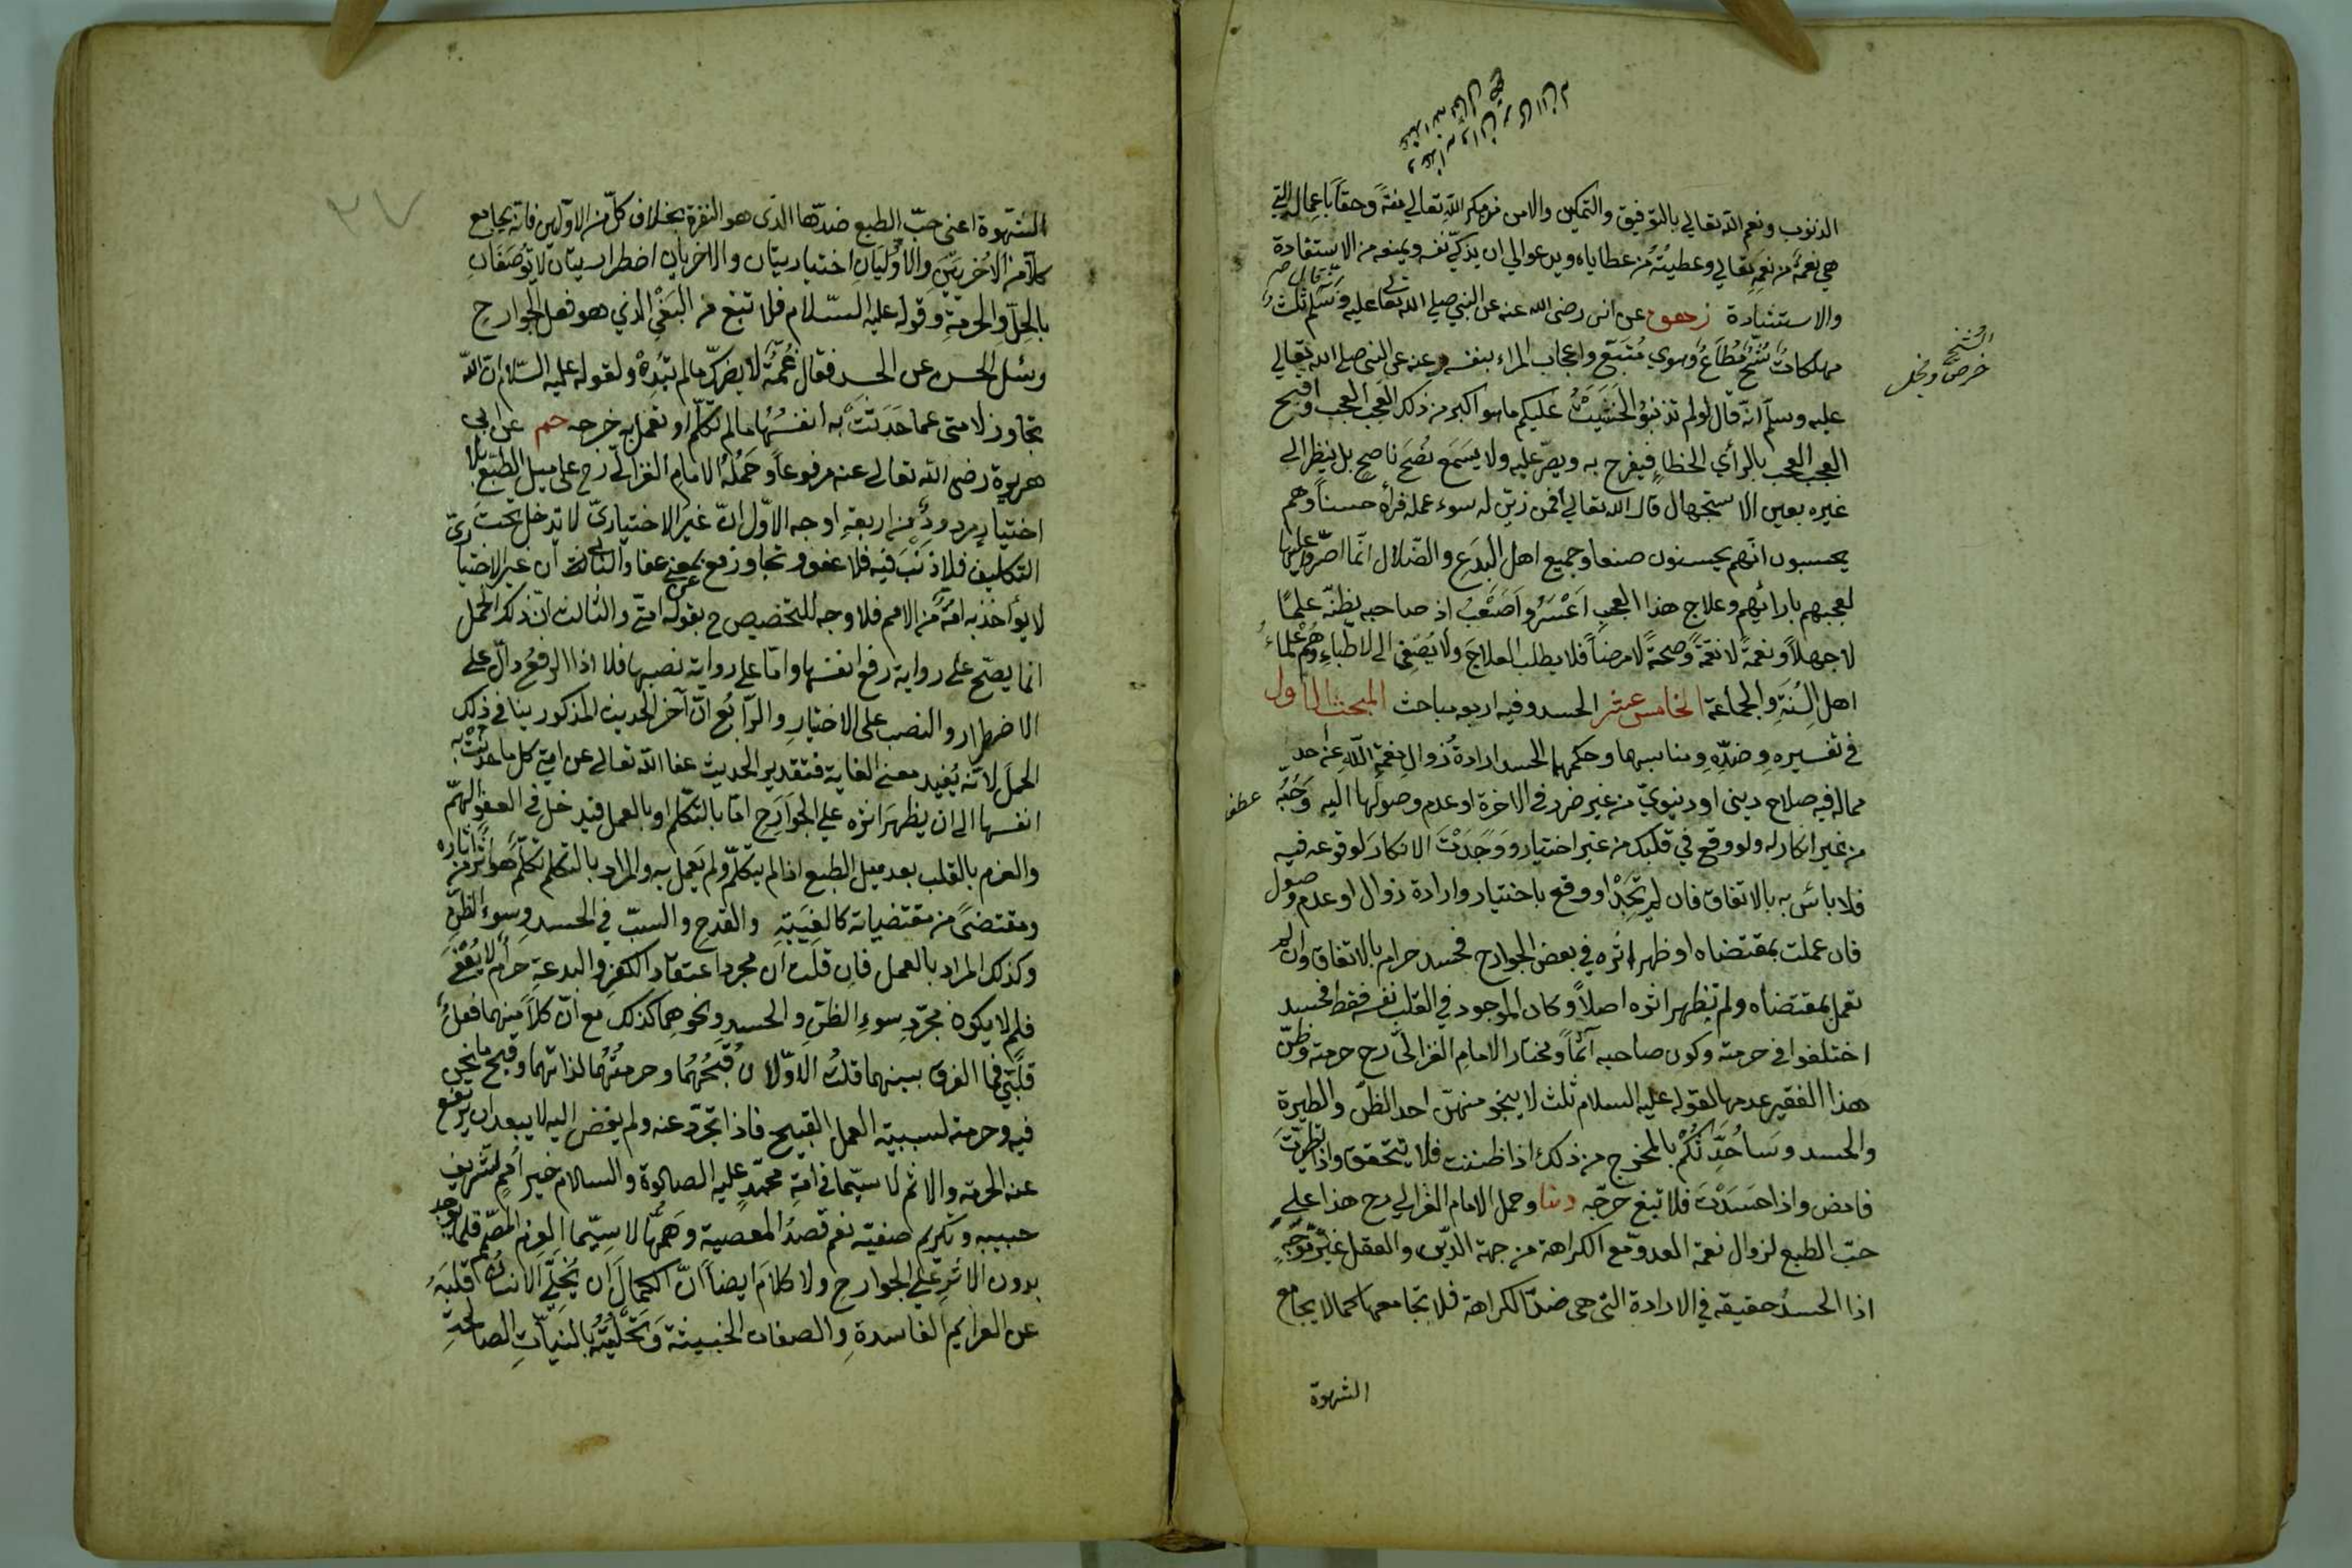 الذنوب ونعم الله تعالى بالتوفيق والتمكين والامن من مكر الله تعالى منة وحقا باعمال التي
هي نعمة من نعم تعالى وعطية من عطاياه ويدعو الى ان يذكي نفسه ويمنعه من الاستفادة
والاستشارة زحهق عن انس رضى الله عنه عن النبي صلى الله تعالى عليه وسلم ثلث
مهلكات شح مطاع وهوى متبع واعجاب المراء بنفسه وعنه عن النبي صلى الله تعالى
الشح
حرص وبخل
عليه وسلم انه قال لو لم تذنبوا لخشيت عليكم ما هو اكبر من ذلك العجب العجب واقبح
العجب العجب بالرأي الخطاء فيفرح به ويصر عليه ولا يسمع نصح ناصح بل ينظر الى
غيره بعين الاستجهال قال الله تعالى افمن زين له سوء عمله فرأه حسنا وهم
يحسبون انهم يحسنون صنعا وجميع اهل البدع والضلال انما اصروا عليها
لعجبهم بارائهم وعلاج هذا العجب اعسر واصعب اذ صاحبه يظنه علما
لا جهلا ونعمة لا نقمة وصحة لا مرضا فلا يطلب العلاج ولا يصغى الى الاطباء وهم علماء
اهل السنة والجماعة الخامس عشر الحسد وفيه اربعة مباحث المبحث الاول
في تفسيره وضده ومناسبها وحكمهما الحسد ارادة زوال نعمة الله عن احد
مما له فيه صلاح ديني او دنيوي من غير ضرر في الاخرة او عدم وصولها اليه وحبه
عطف
من غير انكار له ولو وقع في قلبك من غير اختيار ووجدت الانكار لوقوعه فيه
فلا بائس به بالاتفاق فان لم تجد او وقع باختيار وارادة زوال او عدم وصول
فان عملت بمقتضاه او ظهر اثره في بعض الجوارح فحسد حرام بالاتفاق وان لم
تعمل بمقتضاه ولم يظهر اثره اصلا وكان الموجود في القلب نفسه فقط فحسد
اختلفوا في حرمته وكون صاحبه آثما ومختار الامام الغزالى رح حرمته وظن
هذا الفقير عدمها لقوله عليه السلام ثلث لا ينجو منهن احد الظن والطيرة
والحسد وساحدثكم بالمخرج من ذلك اذا ظننت فلا تتحقق واذا تطيرت
فامض واذا حسدت فلا تبغ خرجه دنيا وحمل الامام الغزالي رح هذا على
حب الطبع لزوال نعمة العدو مع الكراهة من جهة الدين والعقل غير موجه
اذا الحسد حقيقة في الارادة التى هى ضد الكراهة فلا تجامعها كما لا يجامع
الشهوة
الشهوة اعنى حب الطبع ضدها الذى هو النفرة بخلاف كل من الاولين فانه يجامع
كلا من الاخريين والاوليان اختياريتان والاخريان اضطراريتان لا توصفان
بالحل والحرمة وقوله عليه السلام فلا تبغ من البغي الذي هو فعل الجوارح
وسئل الحسن عن الحسد فقال غمه لا يضرك ما لم تبده ولقوله عليه السلام ان الله
تجاوز لامتى عما حدثت به انفسها ما لم تكلم او تعمل به خرجه حم عن ابى
هريرة رضى الله تعالى عنه مرفوعا وحمله الامام الغزالى رح على ميل الطبع بلا
اختيار مردود من اربعة اوجه الاول ان غير الاختياري لا تدخل تحت
التكليف فلا ذنب فيه فلا عفو وتجاوز مع بمعنى عفا والثانى ان غير الاختياري
لا يؤاخذ به امة من الامم فلا وجه للتخصيص ح بقوله عن امتى والثالث ان ذلك الحمل
انما يصح على رواية رفع انفسها واما على رواية نصبها فلا اذا الرفع دال على
الاضطرار والنصب على الاختيار والرابع ان آخر الحديث المذكور ينافى ذلك
الحمل لانه يفيد معنى الغاية فتقدير الحديث عفا الله تعالى عن امتى كل ما حدثت به
انفسها الى ان يظهر اثره على الجوارح اما بالتكلم او بالعمل فيدخل في العفو الهم
والعزم بالقلب بعد ميل الطبع اذا لم يتكلم ولم يعمل به والمراد بالتكلم تكلم هو اثر من آثاره
ومقتضى من مقتضياته كالغيبة والقدح والسب في الحسد وسوء الظن
وكذلك المراد بالعمل فان قلت ان مجرد اعتقاد الكفر والبدعة حرام لا يعفى
فلم لا يكون مجرد سوء الظن والحسد ونحوهما كذلك مع ان كلا منهما فعل
قلبي فما الفرق بينهما قلت الاولان قبحهما وحرمتهما لذاتهما وقبح ما نحن
فيه وحرمته لسببية العمل القبيح فاذا تجرد عنه ولم يفض اليه لا يبعد ان يرتفع
عنه الحرمة والاثم لا سيما في امة محمد عليه الصلوة والسلام خير امم لتشريف
حبيبه وتكريم صفيه نعم قصد المعصية وهمها لا سيما العزم المصمم قلما يوجد
بدون الاثر على الجوارح ولا كلام ايضا ان الكمال ان يخلي الانسان قلبه
عن العزايم الفاسدة والصفات الخبيثة وتحليته بالنيات الصالحة